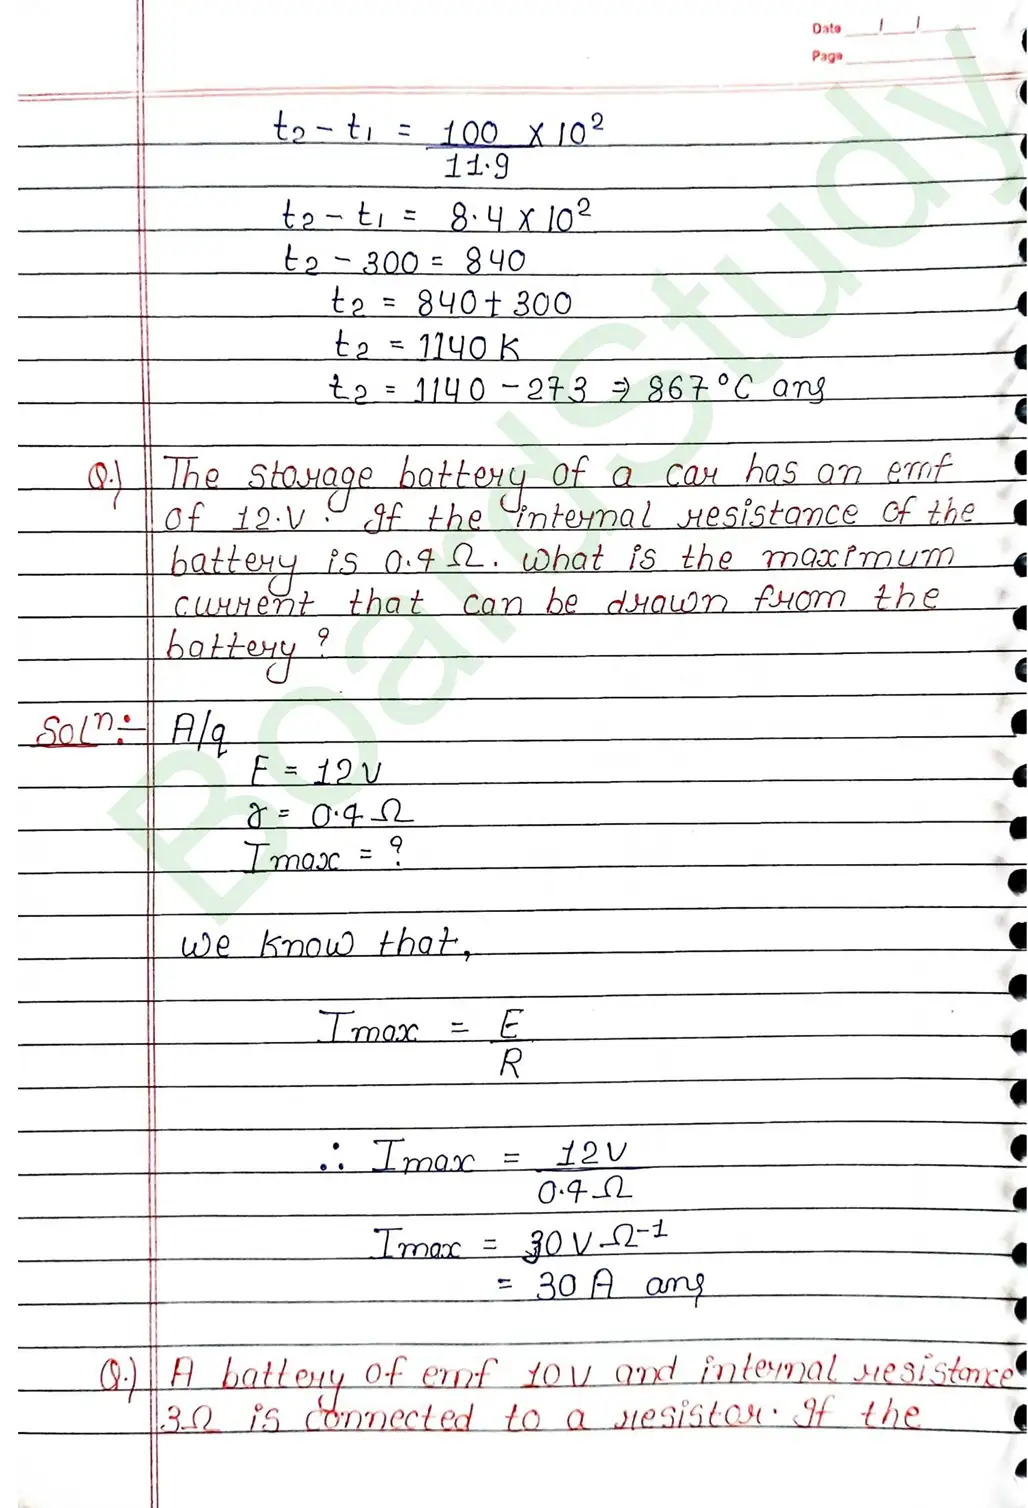 Date
Page
t2 - t1 = 100 × 10²
11.9
t2 - t1 = 8.4 × 10²
t2 - 300 = 840
t2 = 840 + 300
t2 = 1140 K
t2 = 1140 - 273 ⇒ 867°C ans
Q.) The storage battery of a car has an emf
of 12.V. If the internal resistance of the
battery is 0.4 Ω. What is the maximum
current that can be drawn from the
battery?
Solⁿ:- A/q
E = 12V
r = 0.4 Ω
Imax = ?
we know that,
Imax = E
R
∴ Imax = 12V
0.4 Ω
Imax = 30 V Ω⁻¹
= 30 A ans
Q.) A battery of emf 10V and internal resistance
3Ω is connected to a resistor. If the
BoardStudy